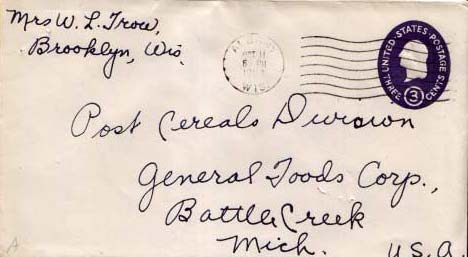 Mrs W. L. Trow,
Brooklyn, Wis.
UNITED STATES POSTAGE
THREE 3 CENTS
WIS.
Post Cereals Division
General Foods Corp.,
Battle Creek
Mich. U.S.A.
A